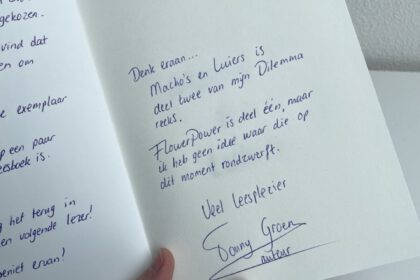 gekozen.
vind dat
en om
exemplaar
een paar
is.
het terug in
volgende lezer!
geniet ervan!
Denk eraan...
Macho's en Luiers is
deel twee van mijn Dilemma
reeks.
FlowerPower is deel één, maar
ik heb geen idee waar die op
dit moment rondzwerft.
Veel leesplezier
Groen
auteur